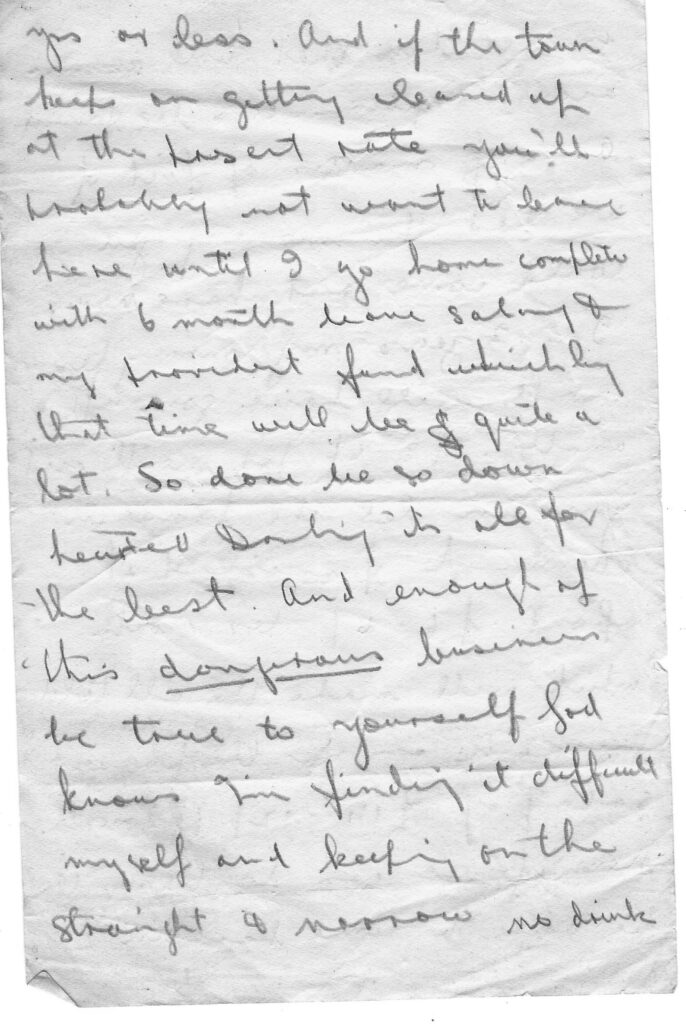 yrs or less. And if the town
keeps on getting cleaned up
at the present rate you'll
probably not want to leave
here until I go home complete
with 6 month leave salary &
my provident fund which by
that time will be quite a
lot. So dont be so down
hearted Darling its all for
the best. And enough of
this dangerous business
be true to yourself God
knows I'm finding it difficult
myself and keeping on the
straight & narrow no drink